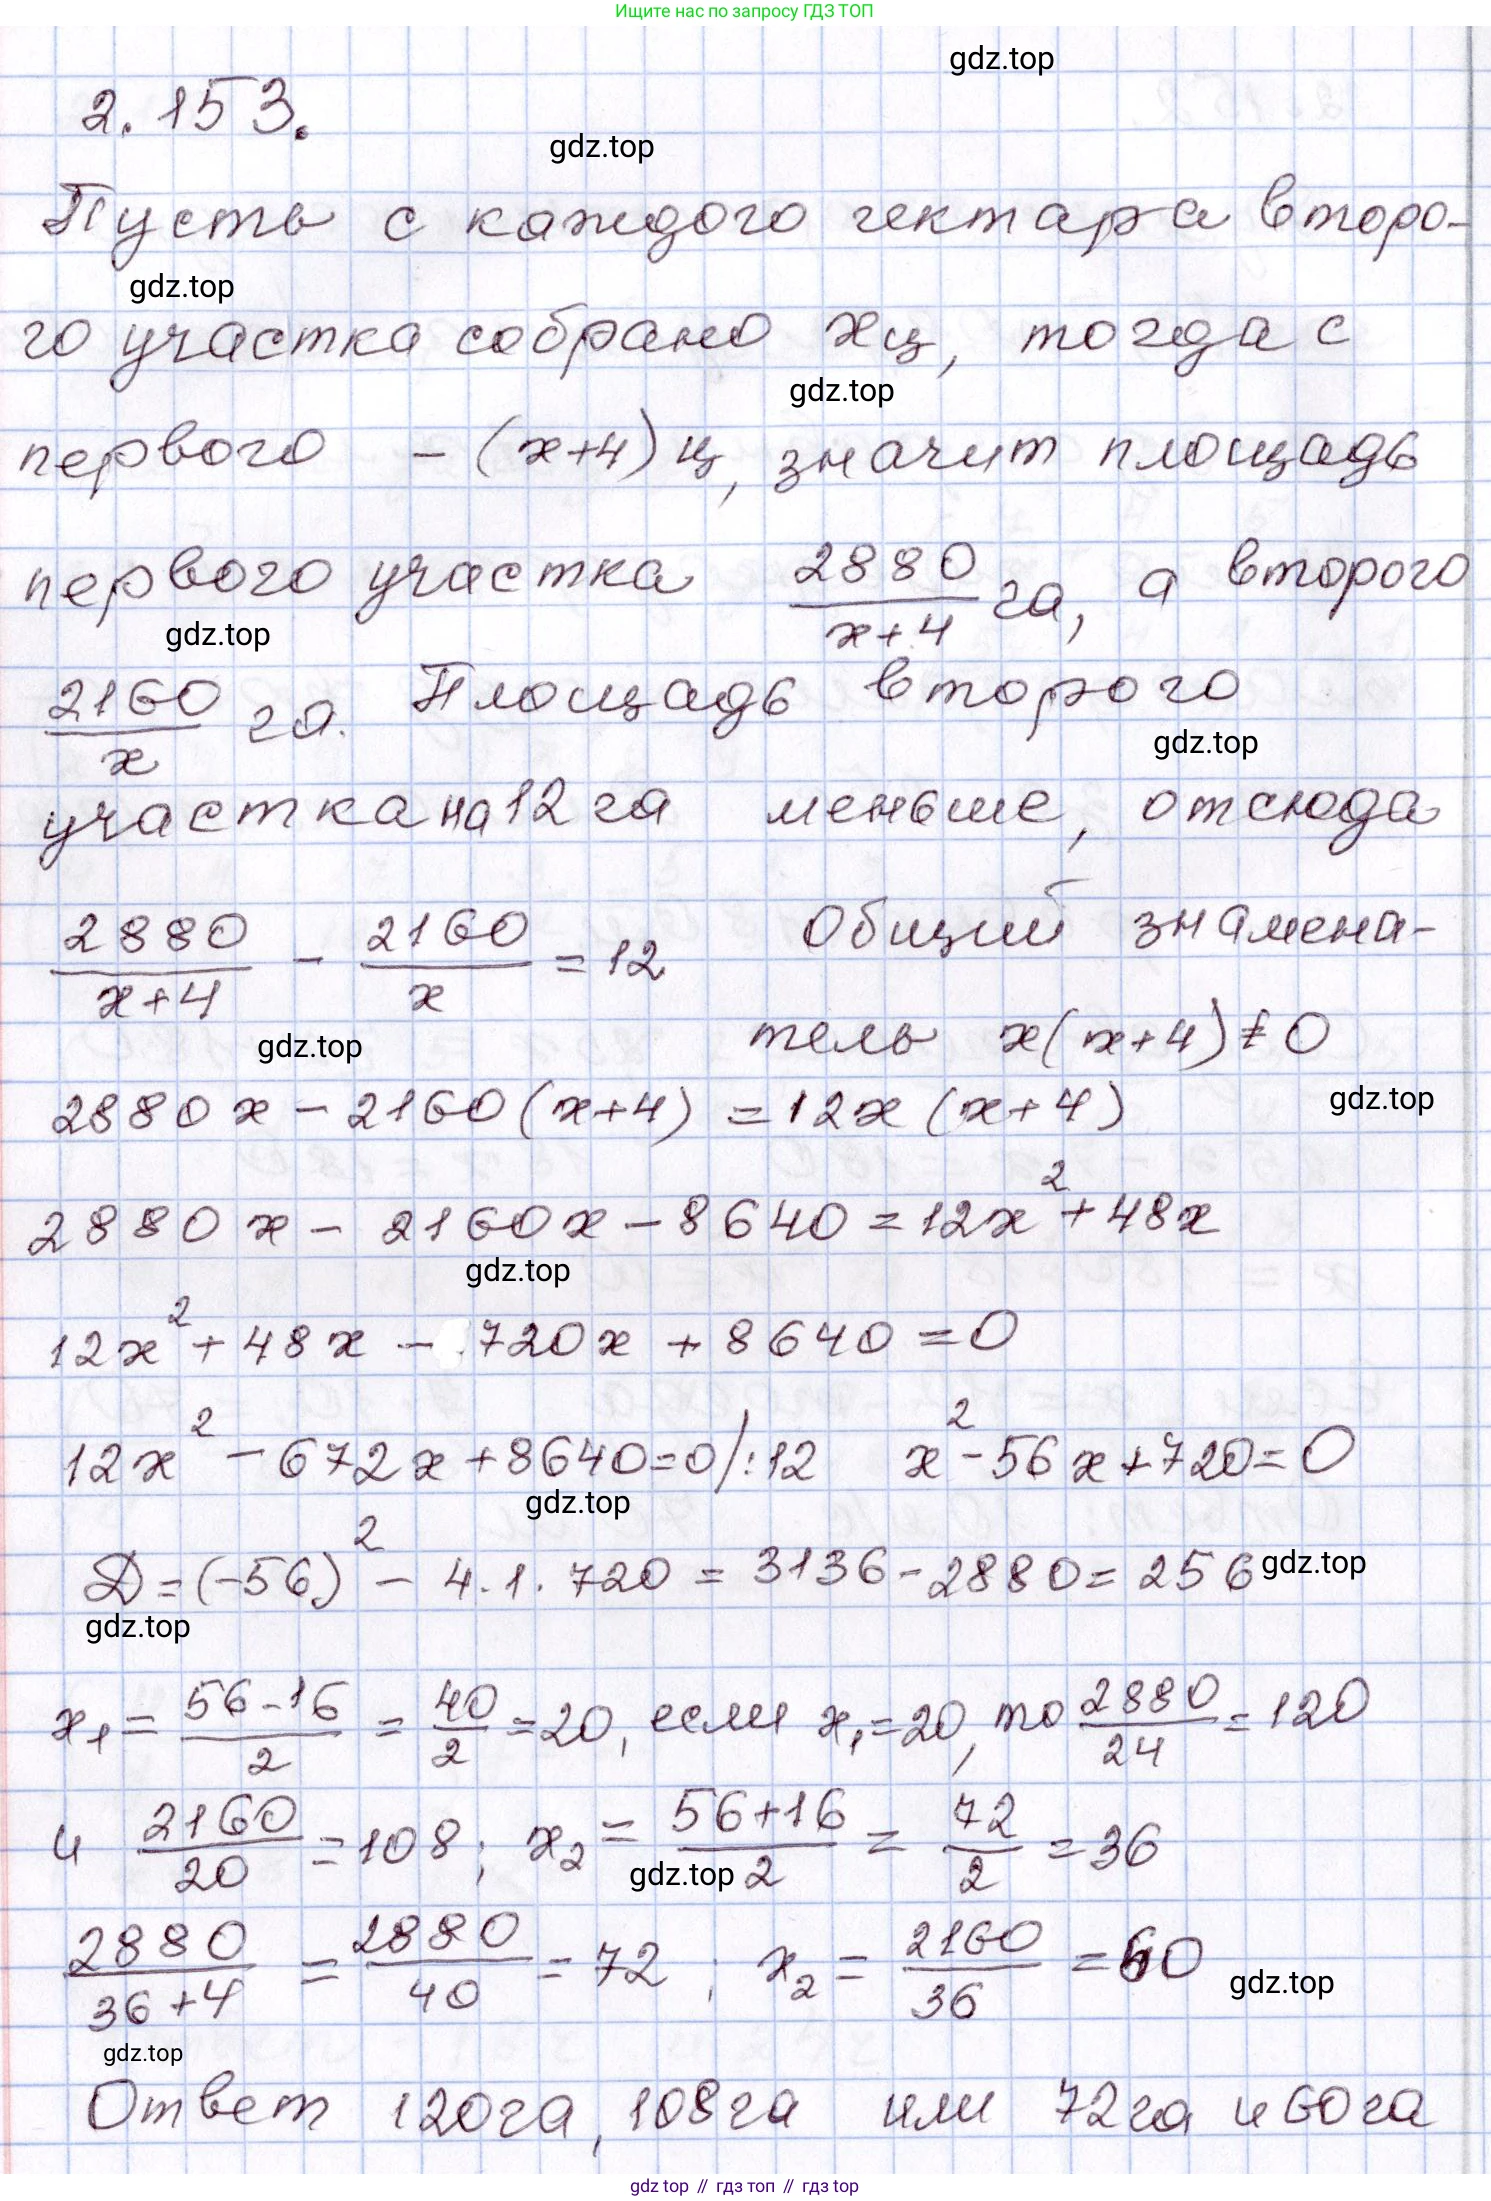 Ищите нас по запросу ГДЗ ТОП
gdz.top
2.153.
gdz.top
Пусть с каждого гектара второ-
gdz.top
го участка собрано x ц, тогда с
gdz.top
первого – (x+4) ц, значит площадь
первого участка 2880/(x+4) га, а второго
gdz.top
2160/x га. Площадь второго
gdz.top
участка на 12 га меньше, отсюда
2880/(x+4) - 2160/x = 12 Общий знамена-
тель x(x+4)≠0
gdz.top
gdz.top
2880x - 2160(x+4) = 12x(x+4)
2880x - 2160x - 8640 = 12x² + 48x
gdz.top
12x² + 48x - 720x + 8640 = 0
12x² - 672x + 8640 = 0 /:12 x² - 56x + 720 = 0
gdz.top
D = (-56)² - 4·1·720 = 3136 - 2880 = 256
gdz.top
gdz.top
x₁ = (56-16)/2 = 40/2 = 20, если x₁=20, то 2880/24 = 120
и 2160/20 = 108; x₂ = (56+16)/2 = 72/2 = 36
gdz.top
2880/(36+4) = 2880/40 = 72; x₂ = 2160/36 = 60
gdz.top
gdz.top
Ответ 120га, 108га или 72га и 60га
gdz top // гдз топ // гдз top